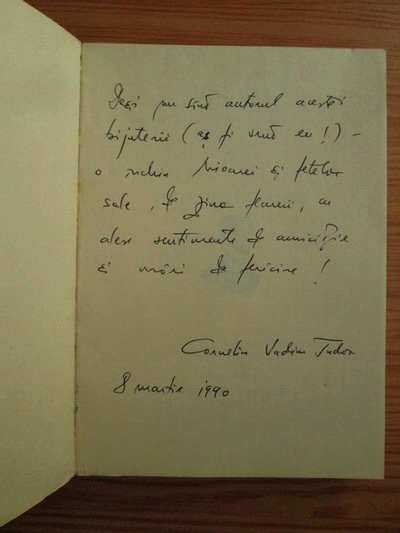 Deși nu sînt autorul acestei
bijuterii (aș fi vrut eu!) –
o închin Mioarei și fetelor
sale, de ziua femeii, cu
alese sentimente de amiciție
și urări de fericire!
Corneliu Vadim Tudor
8 martie 1990